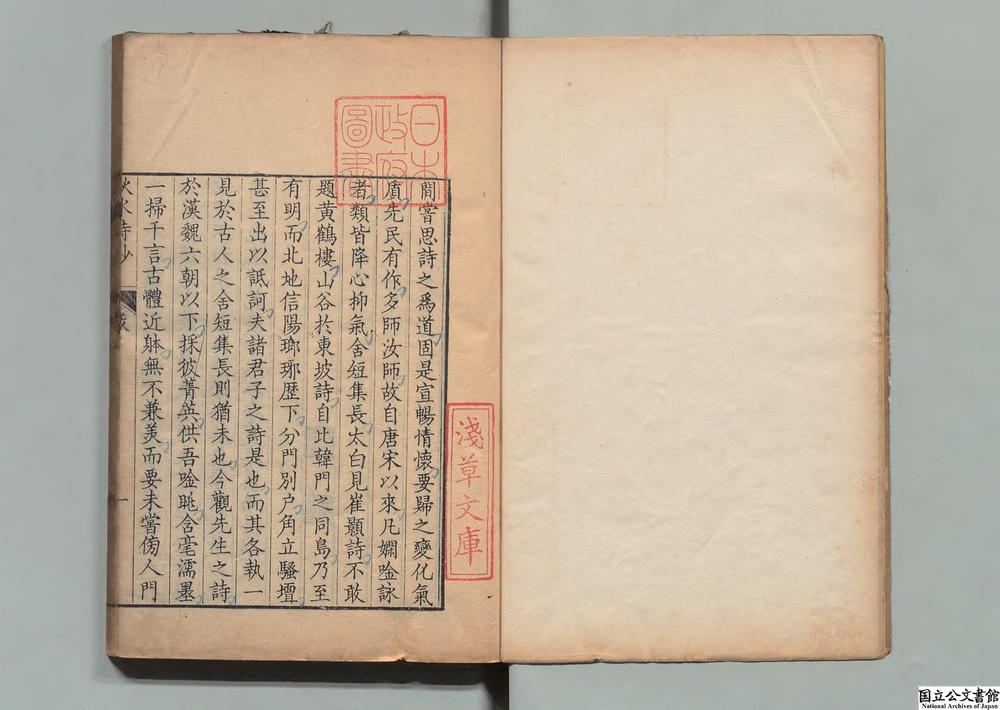 日本
政府
圖書
淺草文庫
間嘗思詩之爲道固是宣暢情懷要歸之變化氣
質先民有作多師汝師故自唐宋以來凡嫻唫詠
者類皆降心抑氣舍短集長太白見崔顥詩不敢
題黄鶴樓山谷於東坡詩自比韓門之同島乃至
有明而北地信陽瑯琊歴下分門別户角立騷壇
甚至出以詆訶夫諸君子之詩是也而其各執一
見於古人之舍短集長則猶未也今觀先生之詩
於漢魏六朝以下採彼菁英供吾唫眺含毫濡墨
一掃千言古體近躰無不兼美而要未嘗傍人門
一
国立公文書館
National Archives of Japan